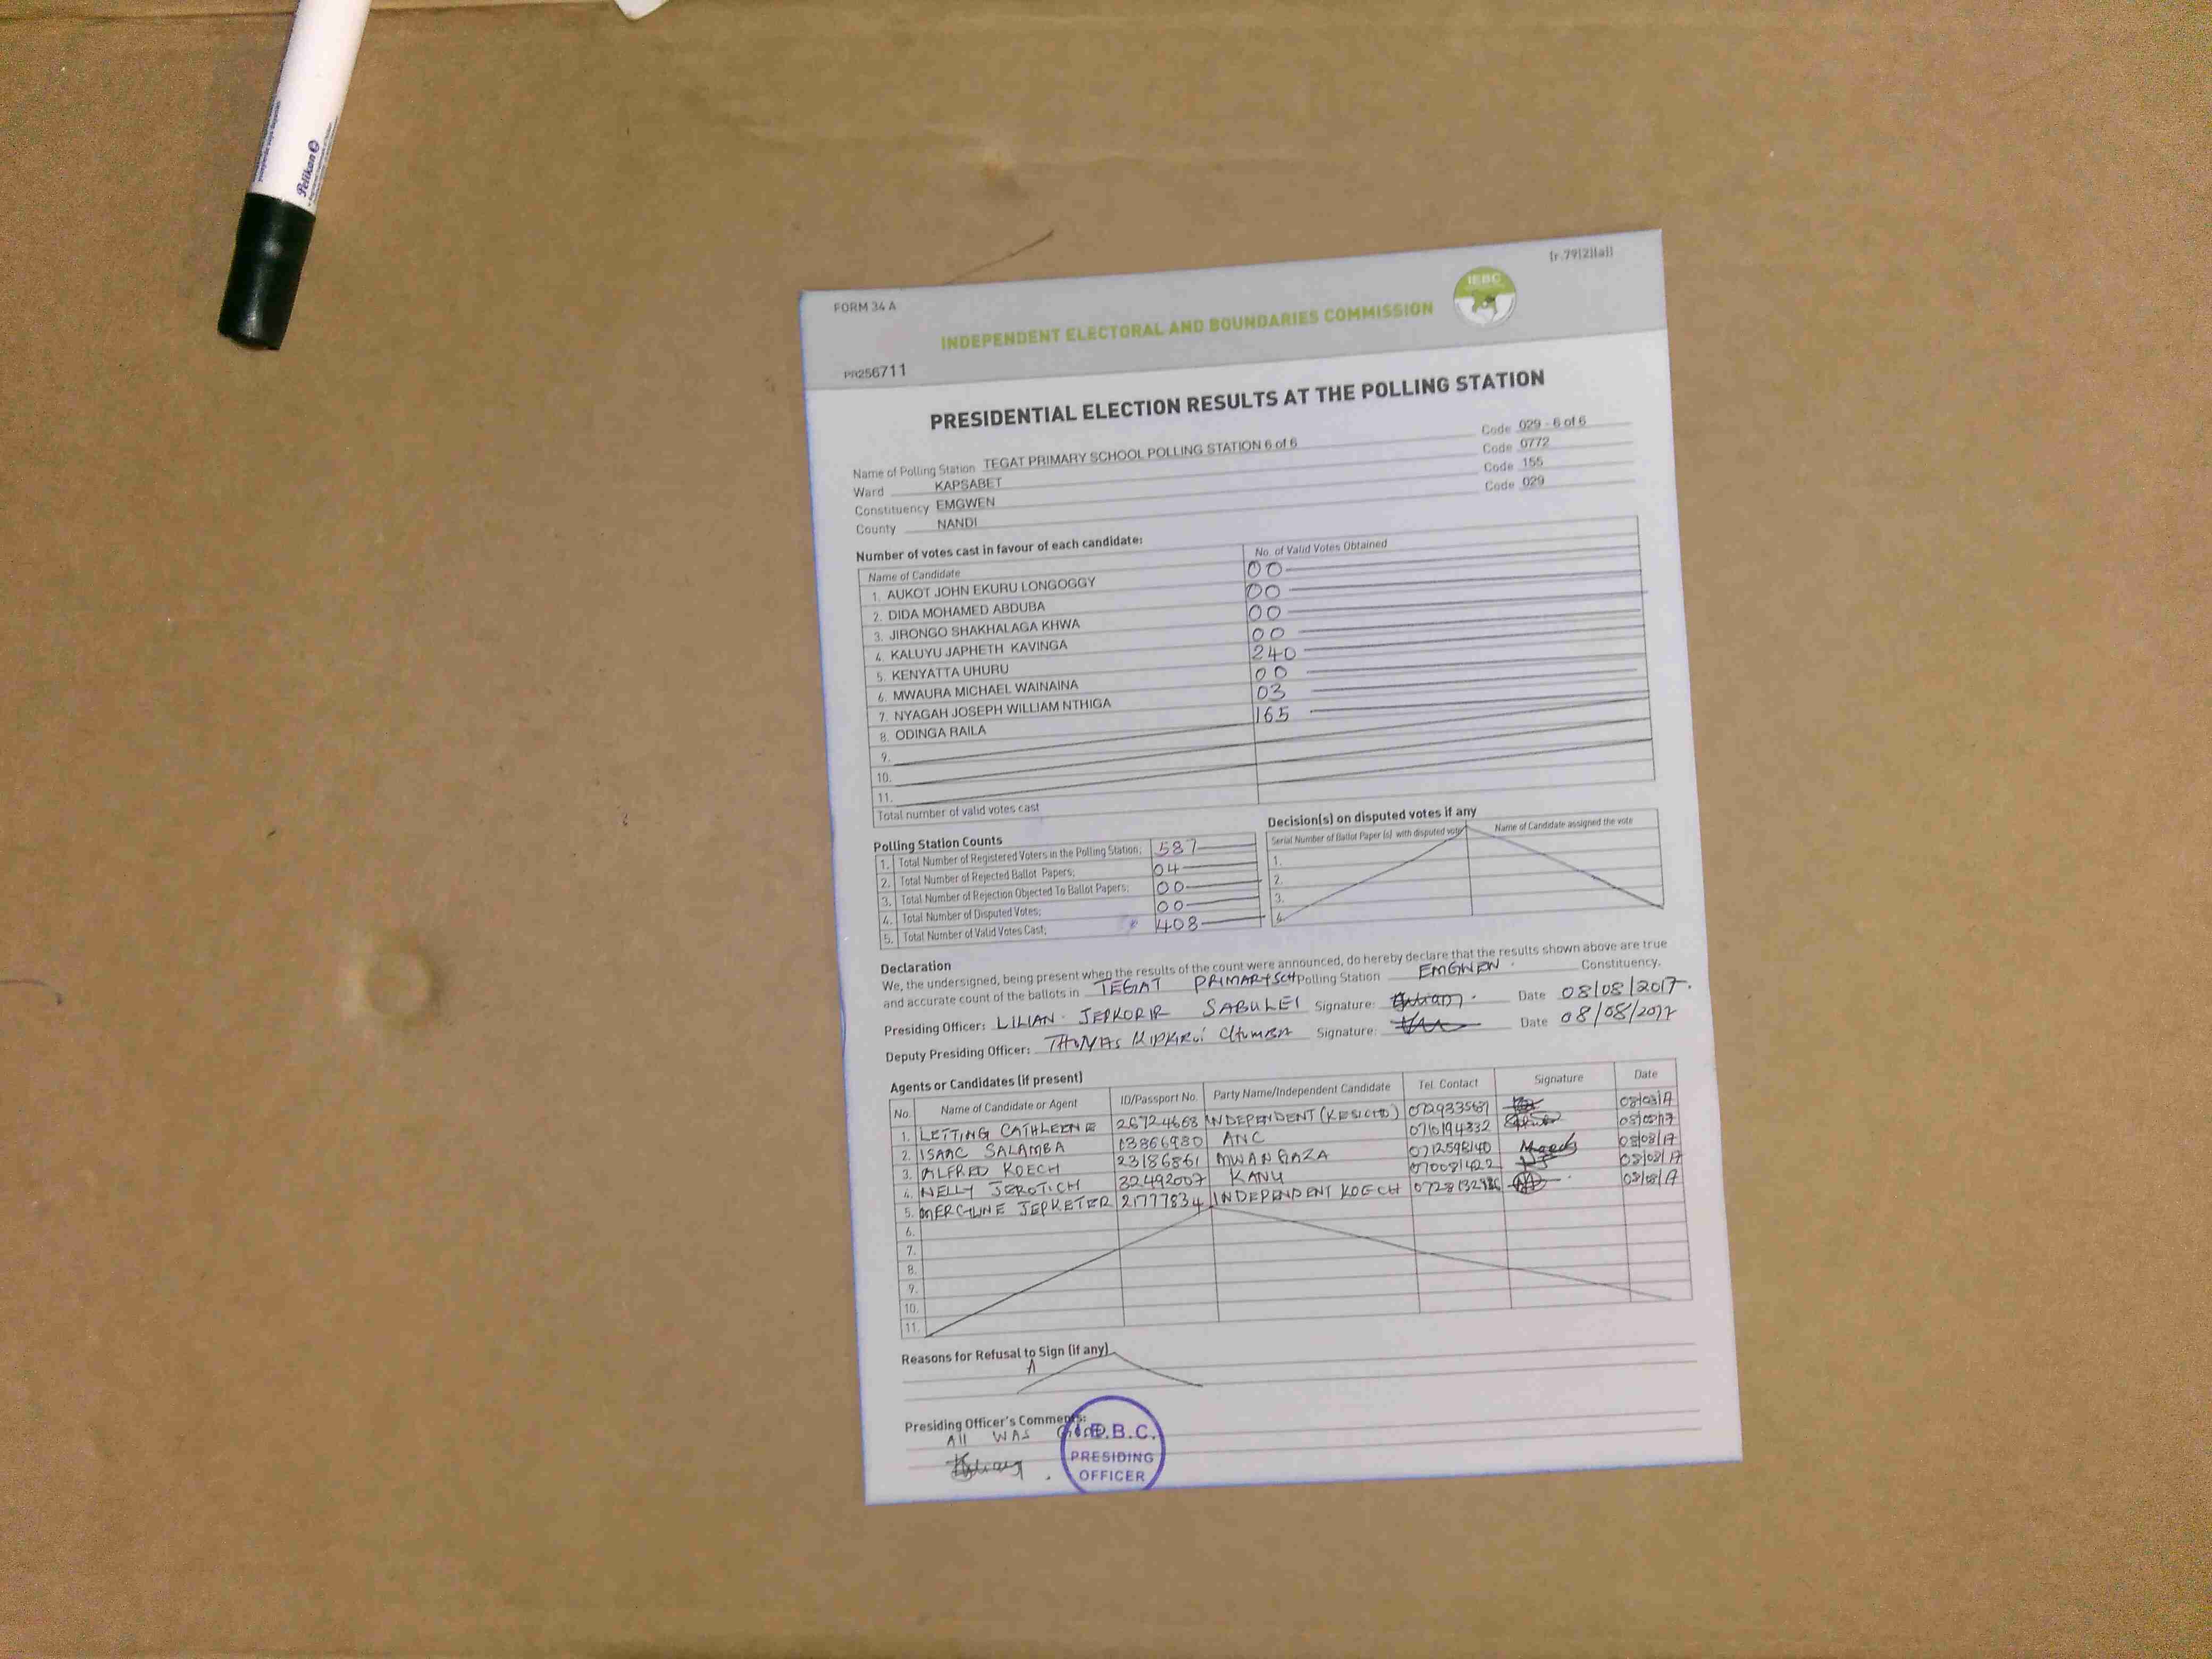 Pelikan
FORM 34 A
(r.79(2)(a))
IEBC
INDEPENDENT ELECTORAL AND BOUNDARIES COMMISSION
PR256711
PRESIDENTIAL ELECTION RESULTS AT THE POLLING STATION
Name of Polling Station TEGAT PRIMARY SCHOOL POLLING STATION 6 of 6 Code 029 - 6 of 6
Ward KAPSABET Code 0772
Constituency EMGWEN Code 155
County NANDI Code 029
Number of votes cast in favour of each candidate:
Name of Candidate No. of Valid Votes Obtained
1. AUKOT JOHN EKURU LONGOGGY 00
2. DIDA MOHAMED ABDUBA 00
3. JIRONGO SHAKHALAGA KHWA 00
4. KALUYU JAPHETH KAVINGA 00
5. KENYATTA UHURU 240
6. MWAURA MICHAEL WAINAINA 00
7. NYAGAH JOSEPH WILLIAM NTHIGA 03
8. ODINGA RAILA 165
9.
10.
11.
Total number of valid votes cast
Polling Station Counts
1. Total Number of Registered Voters in the Polling Station; 587
2. Total Number of Rejected Ballot Papers; 04
3. Total Number of Rejection Objected To Ballot Papers; 00
4. Total Number of Disputed Votes; 00
5. Total Number of Valid Votes Cast; 408
Decision(s) on disputed votes if any
Serial Number of Ballot Paper (s) with disputed vote Name of Candidate assigned the vote
1.
2.
3.
4.
Declaration
We, the undersigned, being present when the results of the count were announced, do hereby declare that the results shown above are true
and accurate count of the ballots in TEGAT PRIMARY SCH Polling Station EMGWEN Constituency.
Presiding Officer: LILIAN JEPKORIR SABULEI Signature: Date 08/08/2017.
Deputy Presiding Officer: THOMAS KIPKIRUI CHUMBA Signature: Date 08/08/2017
Agents or Candidates (if present)
No. Name of Candidate or Agent ID/Passport No. Party Name/Independent Candidate Tel. Contact Signature Date
1. LETTING CATHLEENE 26724668 INDEPENDENT (KESICHO) 08/08/17
2. ISAAC SALAMBA 13866980 ANC 0710194332 08/08/17
3. ALFRED KOECH 23186861 MWANGAZA 0712598140 08/08/17
4. NELLY JEROTICH 32492007 KANU 070081422 08/08/17
5. MERCYLINE JEPKETER 21777834 INDEPENDENT KOECH 08/08/17
6.
7.
8.
9.
10.
11.
Reasons for Refusal to Sign (if any)
Presiding Officer's Comments:
All WAS Good
I.E.B.C.
PRESIDING
OFFICER